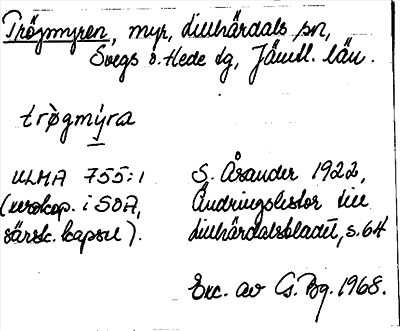 Trögmyren, myr, Lillhärdals sn,
Svegs o. Hede dg, Jämtl. län.
trögmýra
ULMA 755:1
(xerokop. i SOA,
särsk. kapsel).
S. Åsander 1922,
Ändringslistor till
Lillhärdalsbladet, s. 64
Exc. av G. Bg. 1968.